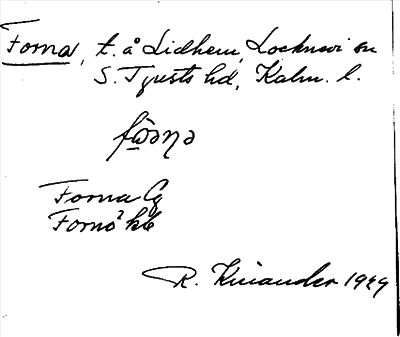 Forna, t. å Lidhem, Locknevi sn
S. Tjusts hd, Kalm. l.
fωəηə
Forna Cg
Fornö² hle
R. Kinander 1929